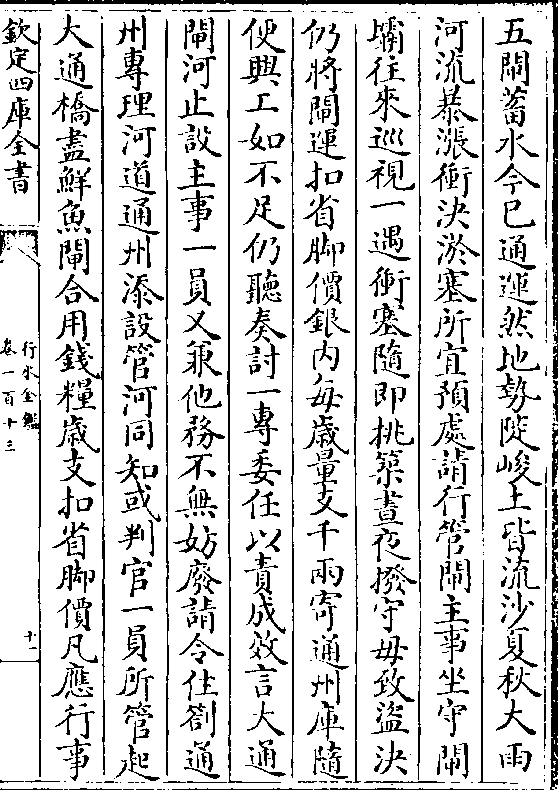 五閘蓄水今已通運然地勢陡峻土皆流沙夏秋大雨
河流暴漲衝決淤塞所宜預處請行管閘主事坐守閘
壩往來巡視一遇衝塞隨即挑築晝夜撥守毋致盜決
仍將閘運扣省脚價銀内每歲量支千兩寄通州庫隨
便興工如不足仍聽奏討一專委任以責成效言大通
閘河止設主事一員又兼他務不無妨廢請令住劄通
州專理河道通州添設管河同知或判官一員所管起
大通橋盡鮮魚閘合用錢糧歲支扣省脚價凡應行事
欽定四庫全書
行水金鑑
卷一百十三
十一